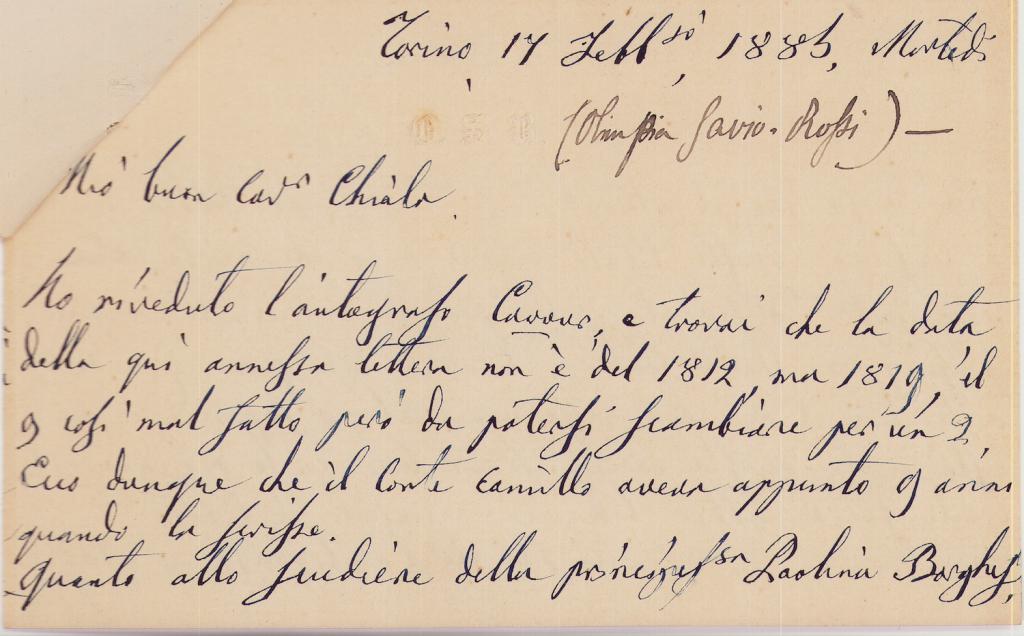 Torino 17 Febb.º 1885, Martedì
(Olimpia Savio-Rossi) —
Mio buon Cavr Chiala
Ho riveduto l'autografo Cavour, e trovai che la data
della qui annessa lettera non è del 1812, ma 1819, el
9 così mal fatto però da potersi scambiare per un 2.
Ecco dunque che il Conte Camillo aveva appunto 9 anni
quando la scrisse.
Quanto allo scudiere della principessa Paolina Borghes,